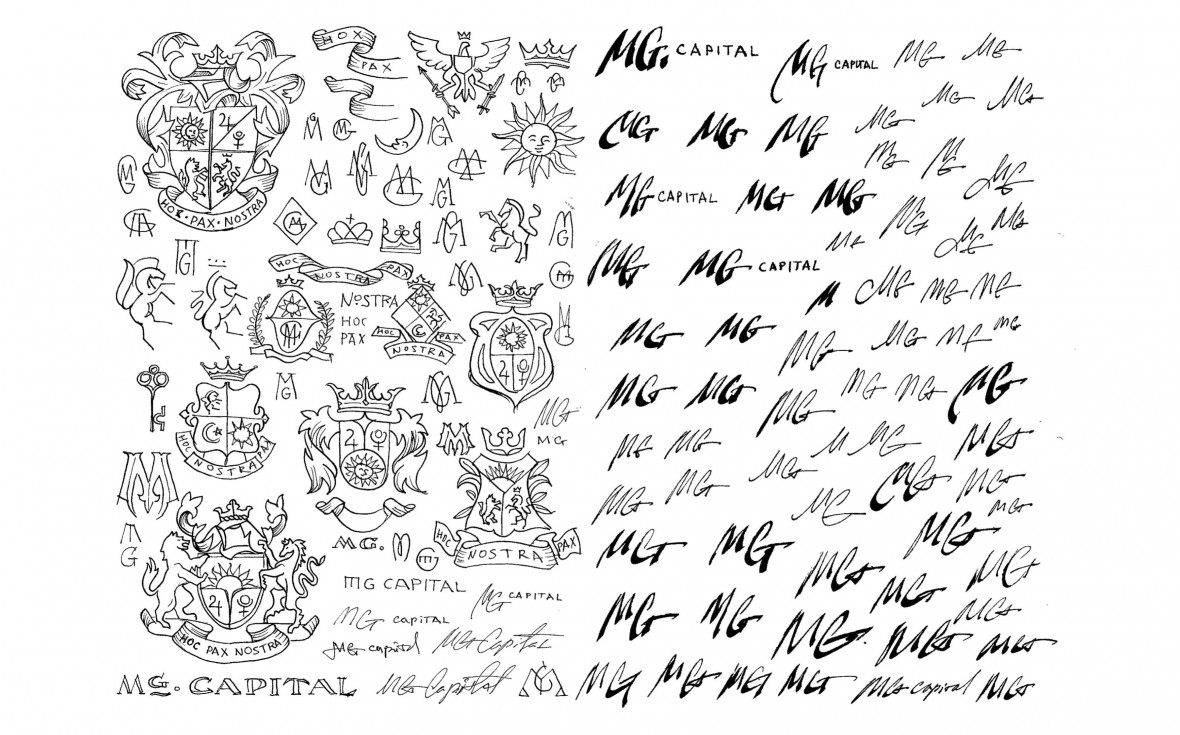 HOX
PAX
HOC · PAX · NOSTRA
HOC
NOSTRA
PAX
NOSTRA
HOC
PAX
HOC
PAX
NOSTRA
HOC NOSTRA PAX
MG
MG
HOC
NOSTRA
PAX
MG.
HOC PAX NOSTRA
MG CAPITAL
MG CAPITAL
MG capital
MG capital
MG Capital
MG. CAPITAL
MG Capital
MG. CAPITAL
MG CAPITAL
MG
MG
MG
MG
MG
MG
MG
MG
MG
MG
MG CAPITAL
MG
MG
MG
MG
MG
MG
MG
MG CAPITAL
M
MG
MG
MG
MG
MG
MG
MG
MG
MG
MG
MG
MG
MG
MG
MG
MG
MG
MG
MG
MG
MG
MG
MG
MG
MG
MG
MG
MG
MG
MG
MG
MG
MG
MG
MG
MG
MG
MG
MG
MG
MG capital
MG